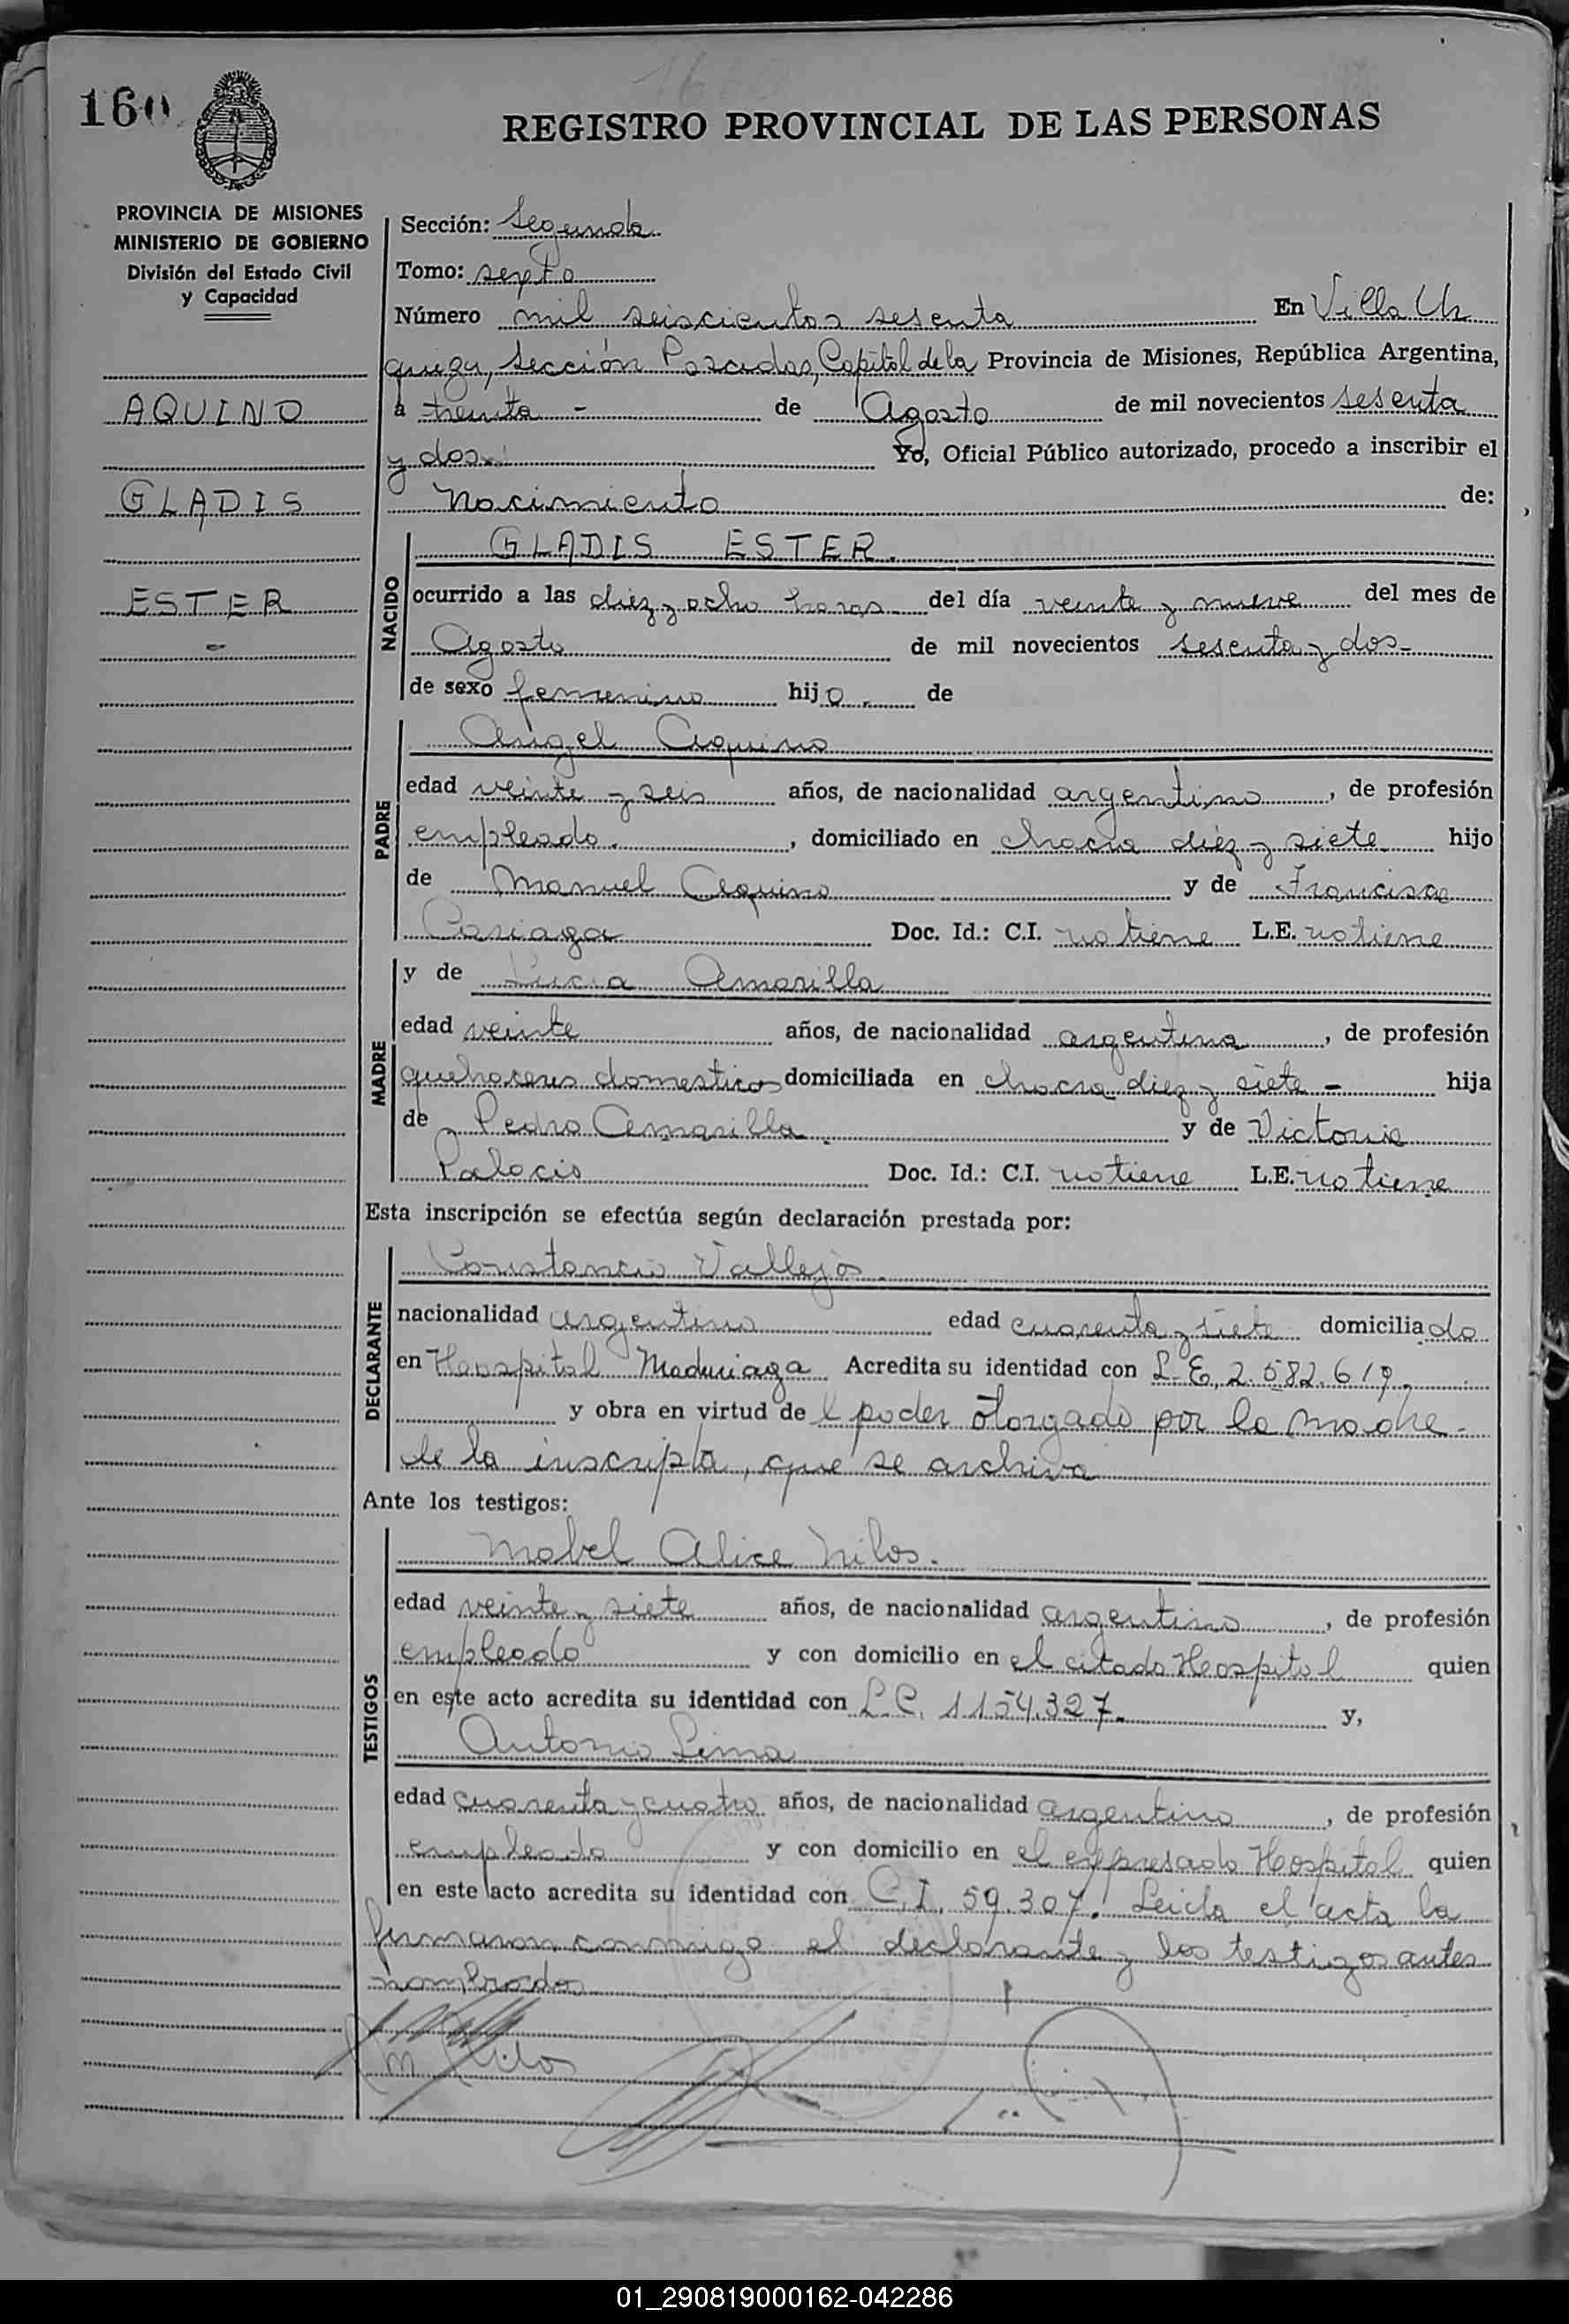 160
REGISTRO PROVINCIAL DE LAS PERSONAS
PROVINCIA DE MISIONES
MINISTERIO DE GOBIERNO
División del Estado Civil
y Capacidad
AQUINO
GLADIS
ESTER
Sección: Segunda
Tomo: sexto
Número mil seiscientos sesenta En Villa Ur
quiza, sección Posadas, Capital de la Provincia de Misiones, República Argentina,
a treinta - de Agosto de mil novecientos sesenta
y dos Yo, Oficial Público autorizado, procedo a inscribir el
Nacimiento de:
NACIDO
GLADIS ESTER.
ocurrido a las diez y ocho horas del día veinte y nueve del mes de
Agosto de mil novecientos sesenta y dos-
de sexo femenino hijo de
PADRE
Angel Aquino
edad veinte y seis años, de nacionalidad argentino, de profesión
empleado, domiciliado en chacra diez y siete hijo
de Manuel Aquino y de Francisca
Cariaga Doc. Id.: C.I. no tiene L.E. no tiene
MADRE
y de Lucia Amarilla
edad veinte años, de nacionalidad argentina, de profesión
quehaceres domesticos domiciliada en chacra diez y siete - hija
de Pedro Amarilla y de Victoria
Palacio Doc. Id.: C.I. no tiene L.E. no tiene
Esta inscripción se efectúa según declaración prestada por:
DECLARANTE
Constancio Vallejos
nacionalidad argentino edad cuarenta y siete domiciliado
en Hospital Madariaga Acredita su identidad con L.E. 2.582.619.
y obra en virtud de l poder otorgado por la madre
de la inscripta, que se archiva
Ante los testigos:
TESTIGOS
Mabel Alice Nilos.
edad veinte y siete años, de nacionalidad argentino, de profesión
empleado y con domicilio en el citado Hospital quien
en este acto acredita su identidad con L.C. 1.154.327. y,
Antonio Lima
edad cuarenta y cuatro años, de nacionalidad argentino, de profesión
empleado y con domicilio en el expresado Hospital quien
en este acto acredita su identidad con C.I. 59.307. Leida el acta la
firmaron conmigo el declarante y los testigos antes
nombrados
M Nilos
01_290819000162-042286